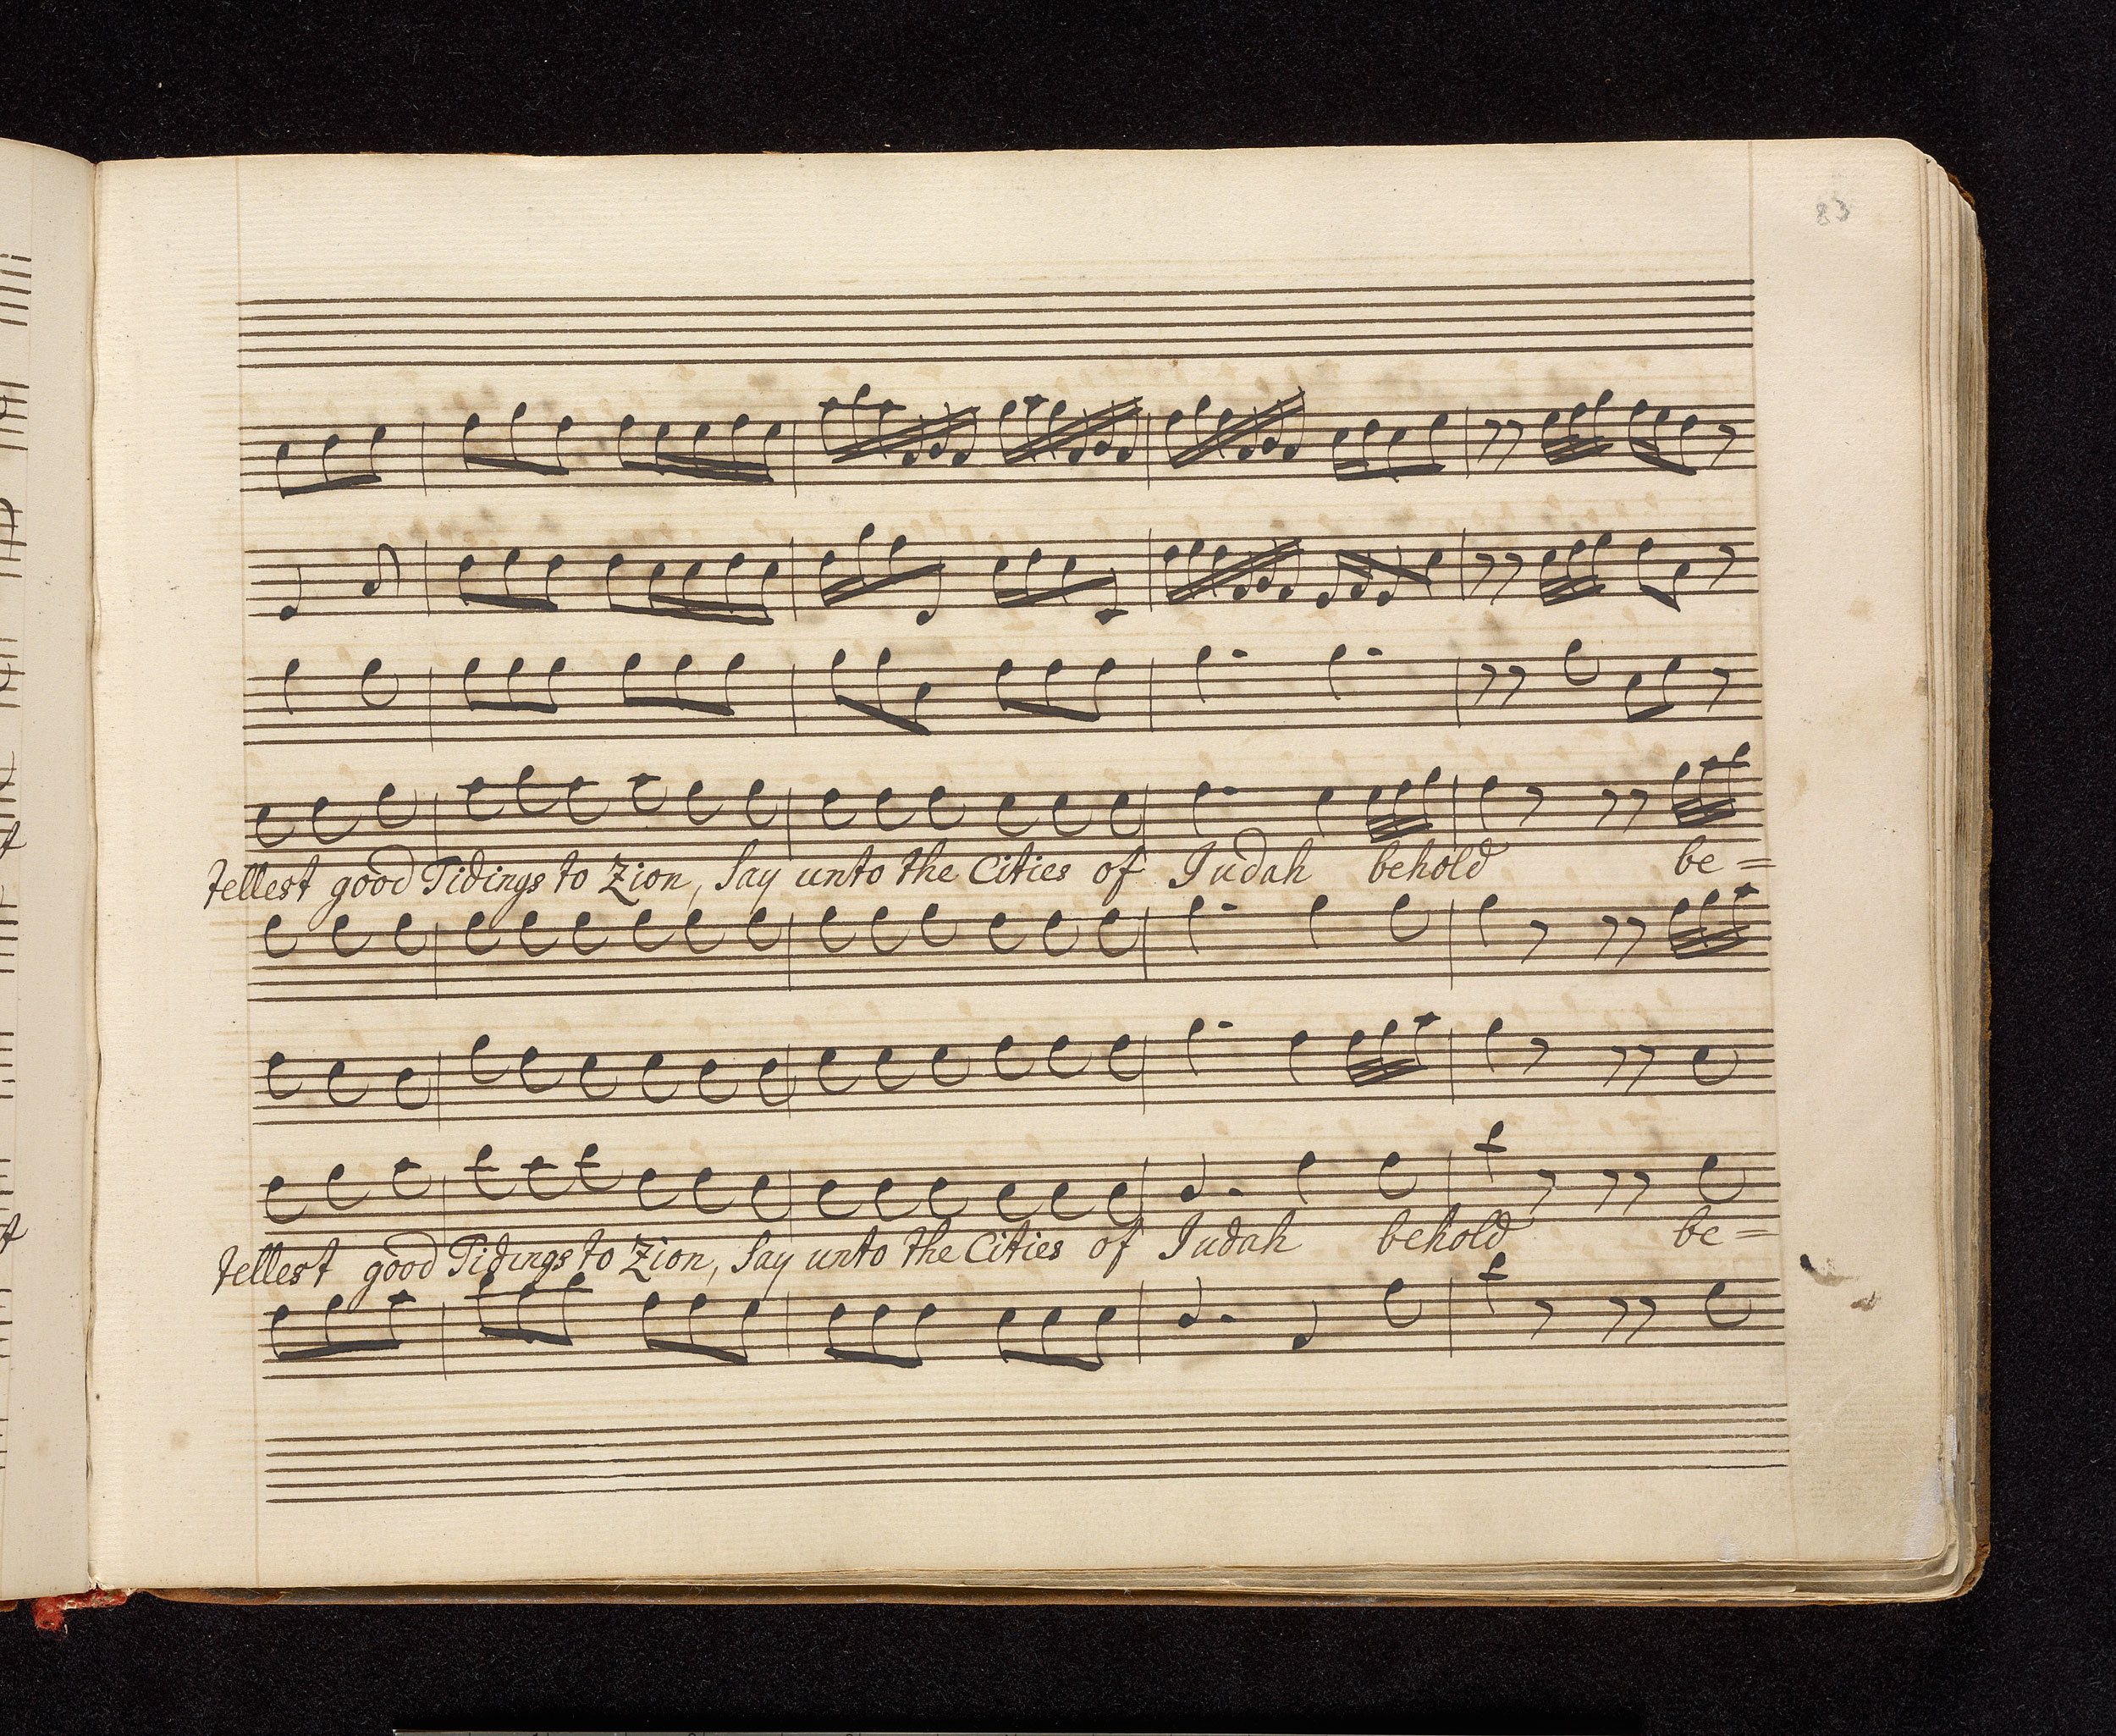 83
tellest good Tidings to Zion, Say unto the Cities of Judah behold be=
tellest good Tidings to Zion, Say unto the Cities of Judah behold be=